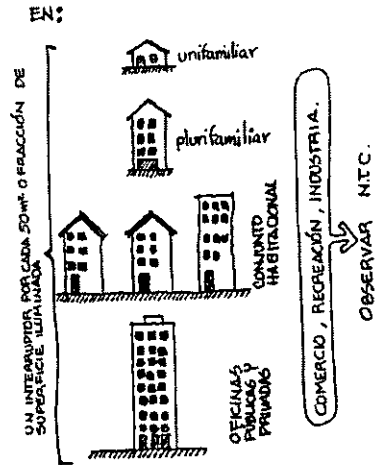 EN:
UN INTERRUPTOR POR CADA 50 m² O FRACCIÓN DE
SUPERFICIE ILUMINADA
unifamiliar
plurifamiliar
CONJUNTO
HABITACIONAL
OFICINAS
PÚBLICAS Y
PRIVADAS
COMERCIO, RECREACIÓN, INDUSTRIA.
OBSERVAR N.T.C.